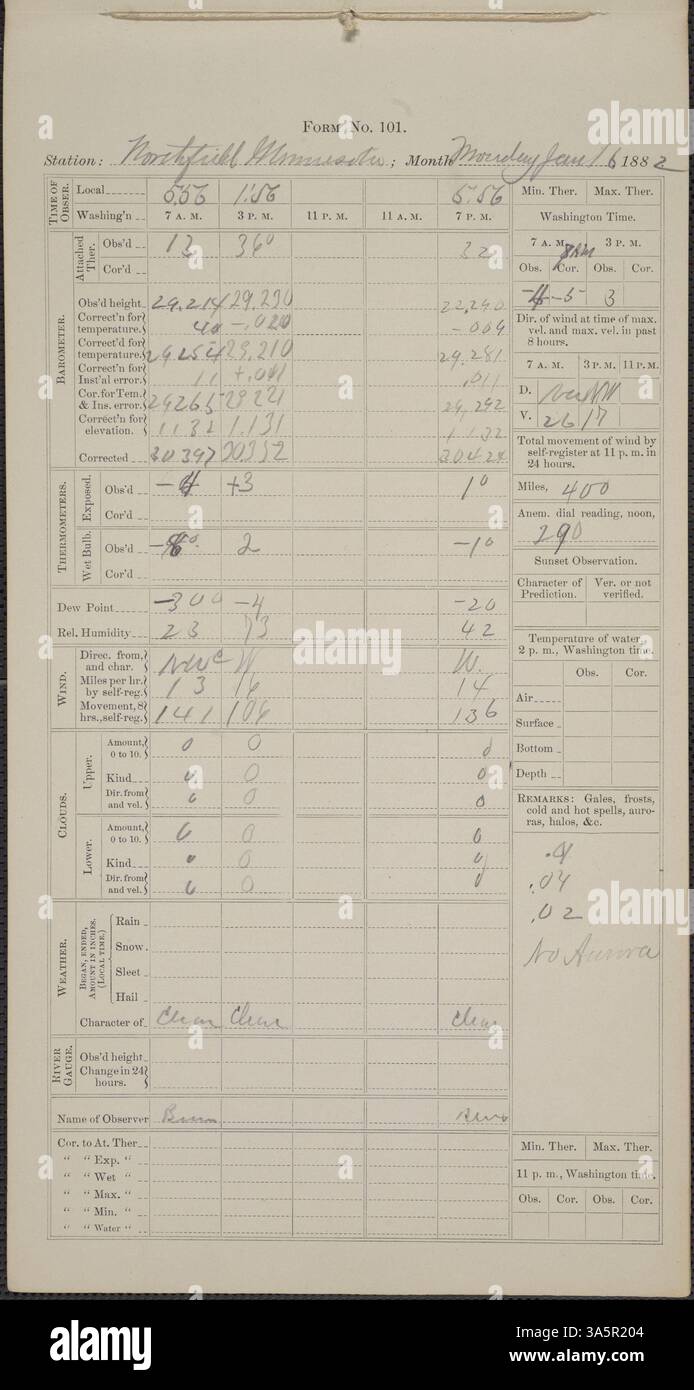 FORM No. 101.
Station: Northfield Minnesota; Month Monday Jan 16 1882
TIME OF OBSER. Local 5.56 1.56 5.56
Washing'n 7 A. M. 3 P. M. 11 P. M. 11 A. M. 7 P. M.
Attached Ther. Obs'd 13 36° 32
Cor'd
BAROMETER. Obs'd height 29.214 29.230
Correct'n for temperature. 40 -.020 -.009
Correct'd for temperature. 29.254 29.210 29.281
Correct'n for Inst'al error. 11 +.011 .011
Cor. for Tem. & Ins. error. 29265 29221 29,292
Correct'n for elevation. 1132 1.131 1132
Corrected 30397 30352 30424
THERMOMETERS. Exposed. Obs'd +3 1°
Cor'd
Wet Bulb. Obs'd 2 -1°
Cor'd
Dew Point -300 -4 -20
Rel. Humidity 23 73 42
WIND. Direc. from, and char. W W.
Miles per hr. by self-reg. 13 16 14
Movement, 8 hrs., self-reg. 141 106 136
CLOUDS. Upper. Amount, 0 to 10. 0 0 0
Kind 0 0 0
Dir. from and vel. 0 0 0
Lower. Amount, 0 to 10. 0 0 0
Kind 0 0 0
Dir. from and vel. 0 0 0
WEATHER. BEGAN, ENDED, AMOUNT IN INCHES. (LOCAL TIME.) Rain
Snow
Sleet
Hail
Character of Clear Clear Clear
RIVER GAUGE. Obs'd height
Change in 24 hours.
Name of Observer
Cor. to At. Ther
" " Exp. "
" " Wet "
" " Max. "
" " Min. "
" " Water "
Min. Ther. Max. Ther.
Washington Time.
7 A. M. 3 P. M.
Obs. Cor. Obs. Cor.
-5 3
Dir. of wind at time of max. vel. and max. vel. in past 8 hours.
7 A. M. 3 P. M. 11 P. M.
D.
V. 26 17
Total movement of wind by self-register at 11 p. m. in 24 hours.
Miles, 400
Anem. dial reading, noon,
290
Sunset Observation.
Character of Prediction. Ver. or not verified.
Temperature of water, 2 p. m., Washington time.
Obs. Cor.
Air
Surface
Bottom
Depth
REMARKS: Gales, frosts, cold and hot spells, auroras, halos, &c.
.04
.02
No Aurora
Min. Ther. Max. Ther.
11 p. m., Washington time.
Obs. Cor. Obs. Cor.
alamy
Image ID: 3A5R204
www.alamy.com